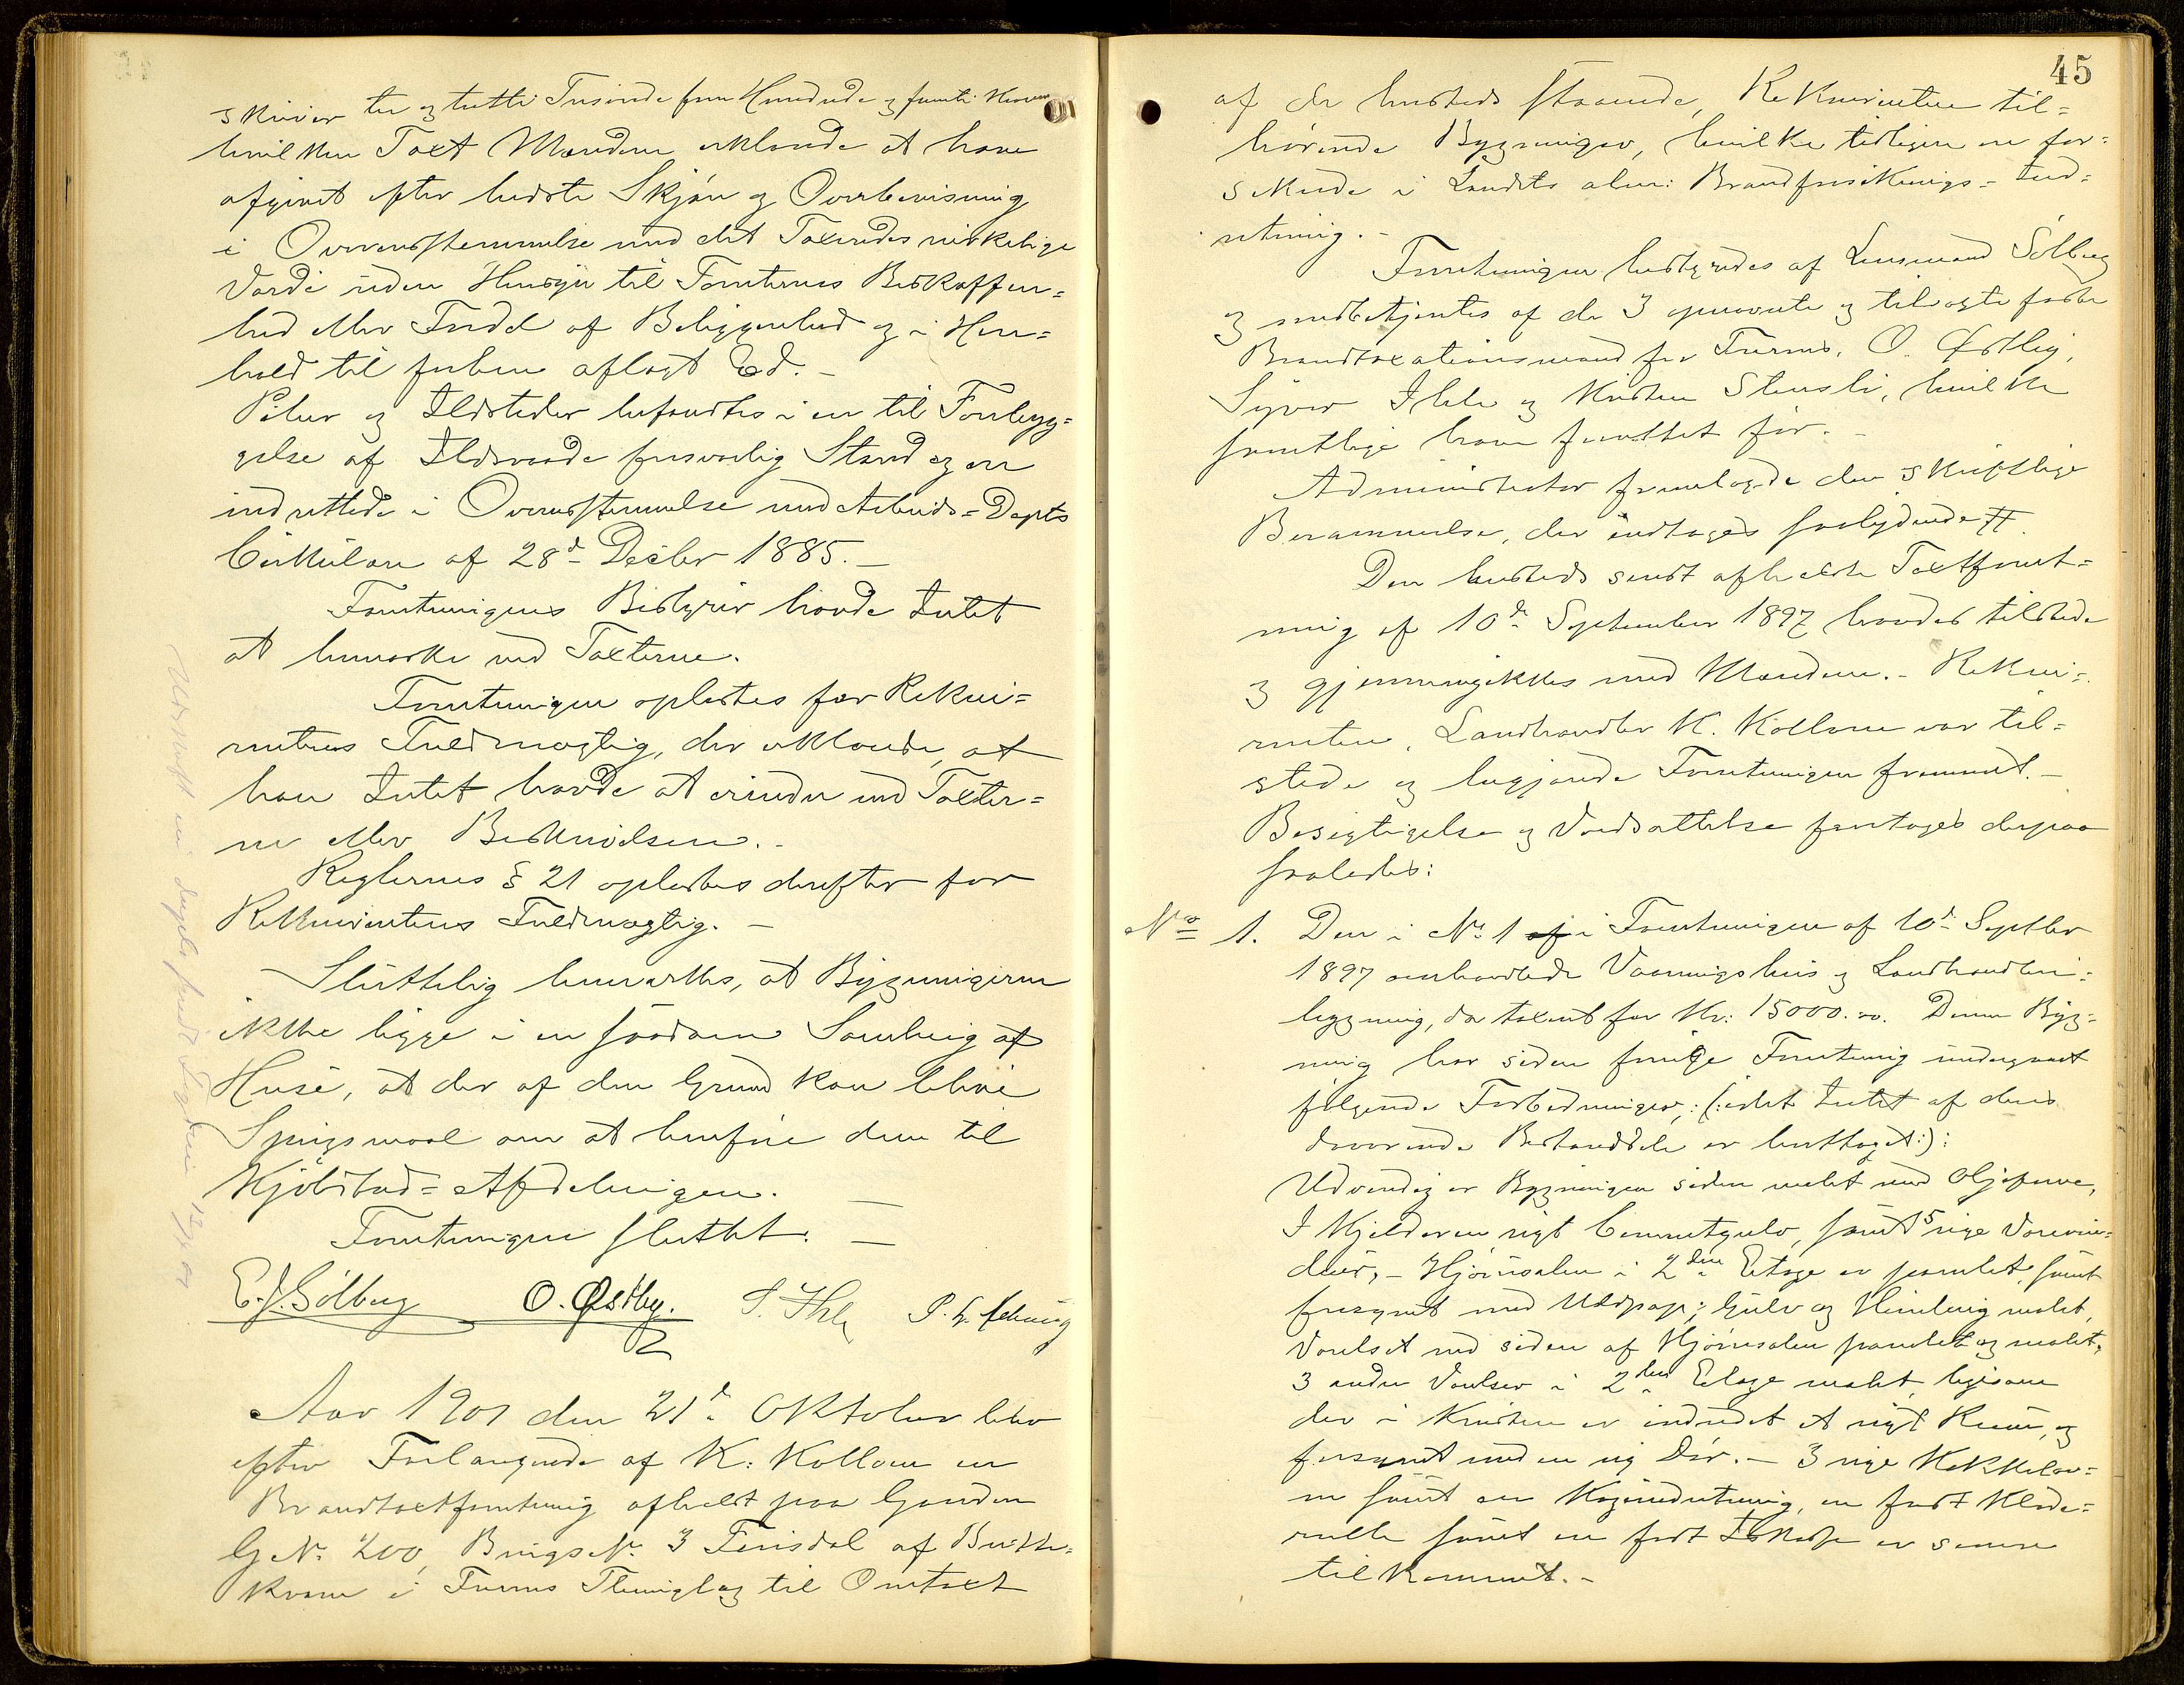 skriver to og tretti Tusinde fem Hundrede og femti Kroner
hvilken Taxt Mændene erklærede at have
afgivet efter bedste Skjøn og Overbevisning
i Overensstemmelse med det Taxeredes virkelige
Værdi uden Hensyn til Tomternes Beskaffen=
hed eller Fordel af Beliggenhed og i Hen=
hold til forhen aflagt Ed. –
Piber og Ildsteder befandtes i en til Forebyg=
gelse af Ildsvaade forsvarlig Stand og er
indrettede i Overensstemmelse med Arbeids=Depts
Cirkulære af 28d Decbr 1885. –
Forretningens Bestyrer havde Intet
at bemærke ved Taxterne.
Forretningen oplæstes for Rekvi=
rentens Fuldmægtig, der erklærede, at
han Intet havde at erindre ved Taxter=
ne eller Beskrivelsen. –
Reglernes § 21 oplæstes derefter for
Rekvirentens Fuldmægtig. –
Sluttelig bemærkes, at Bygningerne
ikke ligge i en saadan Samling af
Huse, at der af den Grund kan blive
Spørgsmaal om at henføre dem til
Kjøbstad=Afdelingen. –
Forretningen sluttet. –
E. J. Sólberg O. Østby. S. Ihle
Aar 1901 den 21d Oktober blev
efter Forlangende af K. Kollom en
Brandtaxtforretning afholdt paa Gaarden
G. No 200, Brugs No 3 Finsdal af
kvam i Furnes Thinglag til Omtaxt
45
af de hersteds staaende, Rekvirenten til=
hørende Bygninger, hvilke tidligere er for=
sikrede i Landets alm: Brandforsikrings=Ind=
retning. –
Forretningen bestyredes af Lensmand Sólberg
og medbetjentes af de 3 opnævnte og tilsagte faste
Brandtaxationsmænd for Furnes, O. Østby,
Syver Ihle og Kristen Stensli, hvilke
samtlige have forrettet før. –
Administrator fremlagde den skriftlige
Berammelse, der indtages saalydende #.
Den hersteds sendt afholdte Taxtforret=
ning af 10de September 1897 havdes tilstede
og gjennemgikkes med Mændene. – Rekvi=
renten, Landhandler K. Kollom var til=
stede og begjærede Forretningen fremmet. –
Besigtigelse og Værdsættelse foretoges derpaa
saaledes:
No 1. Den i No 1 i Forretningen af 10d Septbr
1897 omhandlede Vaaningshus og Landhandleri=
bygning, da taxeret for Kr: 15000.00. Denne Byg=
ning har siden forrige Forretning undergaaet
følgende Forbedringer, (: idet Intet af dens
daværende Bestanddele er borttaget :):
Udvendig er Bygningen siden malet med Oljefarve,
I Kjelderen nyt Cementgulv, samt 5 nye Varevin=
duer, – Hjørnesalen i 2den Etage er panelet, samt
forsynet med Uldpap; Gulv og Himling malet,
Værelset ved siden af Hjørnesalen panelet og malet,
3 andre Værelser i 2den Etage malet, ligesom
der i Kvisten er indredet et nyt Rum, og
forsynet med en ny Dør. – 3 nye Kakkelov=
ne samt en Kogeindretning, en fast Klæde=
rulle samt en fast Iskasse er senere
tilkommet. –